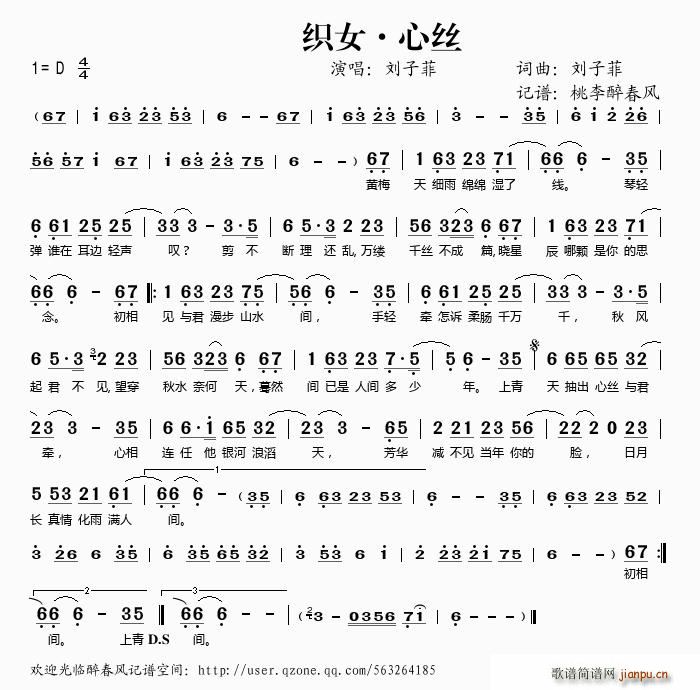 织女·心丝
1=D 4/4 演唱: 刘子菲 词曲: 刘子菲
记谱: 桃李醉春风
(67 | i 63 23 53 | 6 - - 67 | i 63 23 53 | 6 i 56 | 3 - - 35 | 6 i 2 26 |
56 57 i 67 | 53 23 23 75 | 6 - - ) 67 | 1 63 23 71 | 66 6 - 35 |
黄梅 天 细雨 绵绵 湿了 线。 琴轻
6 61 25 25 | 33 3 - 3·5 | 6 5·3 2 23 | 56 323 6 67 | 1 63 23 71 |
弹 谁在 耳边 轻声 叹? 剪 不 断 理 还 乱, 万缕 千丝 不成 篇, 晓星 辰 哪颗 是你 的思
66 6 - 67 |: 1 63 23 75 | 56 6 - 35 | 6 61 25 25 | 33 3 - 35 |
念。 初相 见 与君 漫步 山水 间, 手轻 牵 怎诉 柔肠 千万 千, 秋 风
6 5·3 2 23 | 56 323 6 67 | 1 63 23 7·5 | 5 6 - 35 | 6 65 65 32 |
起 君 不 见, 望穿 秋水 奈何 天, 蓦然 间 已是 人间 多 少 年。 上青 天 抽出 心丝 与君
23 3 - 35 | 56 6·i 65 32 | 23 3 - 65 | 2 21 23 56 | 2 2 0 23 |
牵, 心相 连 任 他 银河 浪滔 天, 芳华 减 不见 当年 你的 脸, 日月
1
5 53 21 61 | 66 6 - (35 | 6 63 23 53 | 6 - - 35 | 6 63 23 52 |
长 真情 化雨 满人 间。
3 26 6 35 | 6 65 65 32 | 3 53 6 i | 23 22 2i 75 | 6 - - ) 67 :|
初相
2 3
66 6 - 35 || 66 6 - - | (3 - 0356 71 | 6 - - - )||
间。 上青 D.S 间。
欢迎光临醉春风记谱空间: http://user.qzone.qq.com/563264185
歌谱简谱网
jianpu.cn